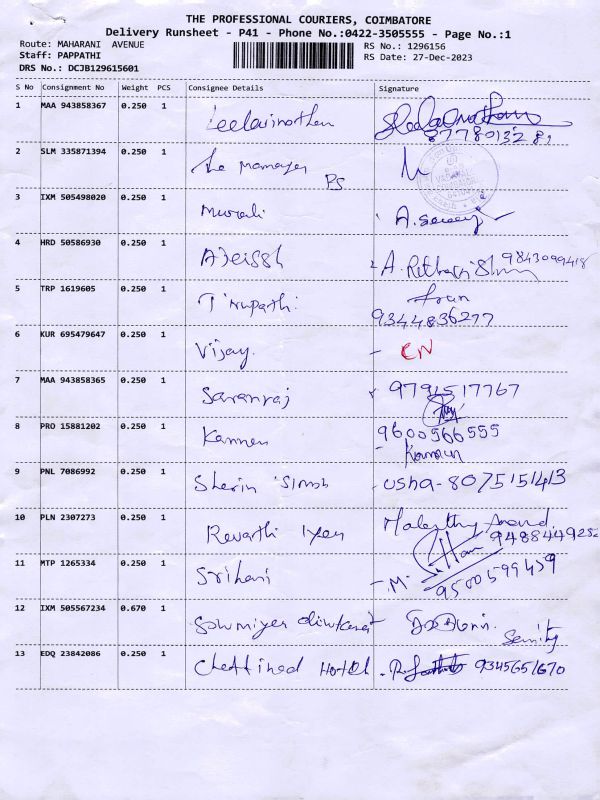 THE PROFESSIONAL COURIERS, COIMBATORE
Delivery Runsheet - P41 - Phone No.:0422-3505555 - Page No.:1
Route: MAHARANI AVENUE
RS No.: 1296156
Staff: PAPPATHI
RS Date: 27-Dec-2023
DRS No.: DCJB129615601
S No Consignment No Weight PCS Consignee Details Signature
1 MAA 943858367 0.250 1 Leelavinothan
2 SLM 335871394 0.250 1 The Manager
PS
3 IXM 505498020 0.250 1 Murali
4 HRD 50586930 0.250 1 9843099418
5 TRP 1619605 0.250 1 Tirupathi
9344836277
6 KUR 695479647 0.250 1 Vijay. - CN
7 MAA 943858365 0.250 1 Saranraj 9791517767
8 PRO 15881202 0.250 1 Kannan 9600566555
- Kannan
9 PNL 7086992 0.250 1 Sherin Singh - usha - 8075151413
10 PLN 2307273 0.250 1 Revathi Iyer
11 MTP 1265334 0.250 1 Srihari - M
9500599459
12 IXM 505567234 0.670 1 Sowmiya
13 EDQ 23842086 0.250 1 Chettinad Hotel 9345651670